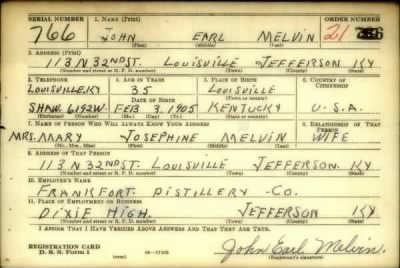 SERIAL NUMBER 1. NAME (Print) ORDER NUMBER
766 JOHN EARL MELVIN 21
(First) (Middle) (Last)
2. ADDRESS (Print)
113 N 32ND ST. LOUISVILLE JEFFERSON KY
(Number and street or R. F. D. number) (Town) (County) (State)
3. TELEPHONE 4. AGE IN YEARS 5. PLACE OF BIRTH 6. COUNTRY OF CITIZENSHIP
LOUISVILLE KY 35 LOUISVILLE
DATE OF BIRTH (Town or county)
SHAW. 6192W. FEB 3. 1905 KENTUCKY U.S.A.
(Exchange) (Number) (Mo.) (Day) (Yr.) (State or country)
7. NAME OF PERSON WHO WILL ALWAYS KNOW YOUR ADDRESS 8. RELATIONSHIP OF THAT PERSON
MRS. MARY JOSEPHINE MELVIN WIFE
(Mr., Mrs., Miss) (First) (Middle) (Last)
9. ADDRESS OF THAT PERSON
113 N 32ND ST. LOUISVILLE JEFFERSON. KY
(Number and street or R. F. D. number) (Town) (County) (State)
10. EMPLOYER'S NAME
FRANKFORT DISTILLERY CO.
11. PLACE OF EMPLOYMENT OR BUSINESS
DIXIE HIGH. JEFFERSON KY
(Number and street or R. F. D. number) (Town) (County) (State)
I AFFIRM THAT I HAVE VERIFIED ABOVE ANSWERS AND THAT THEY ARE TRUE.
REGISTRATION CARD
D. S. S. Form 1 John Earl Melvin.
(Registrant's signature)